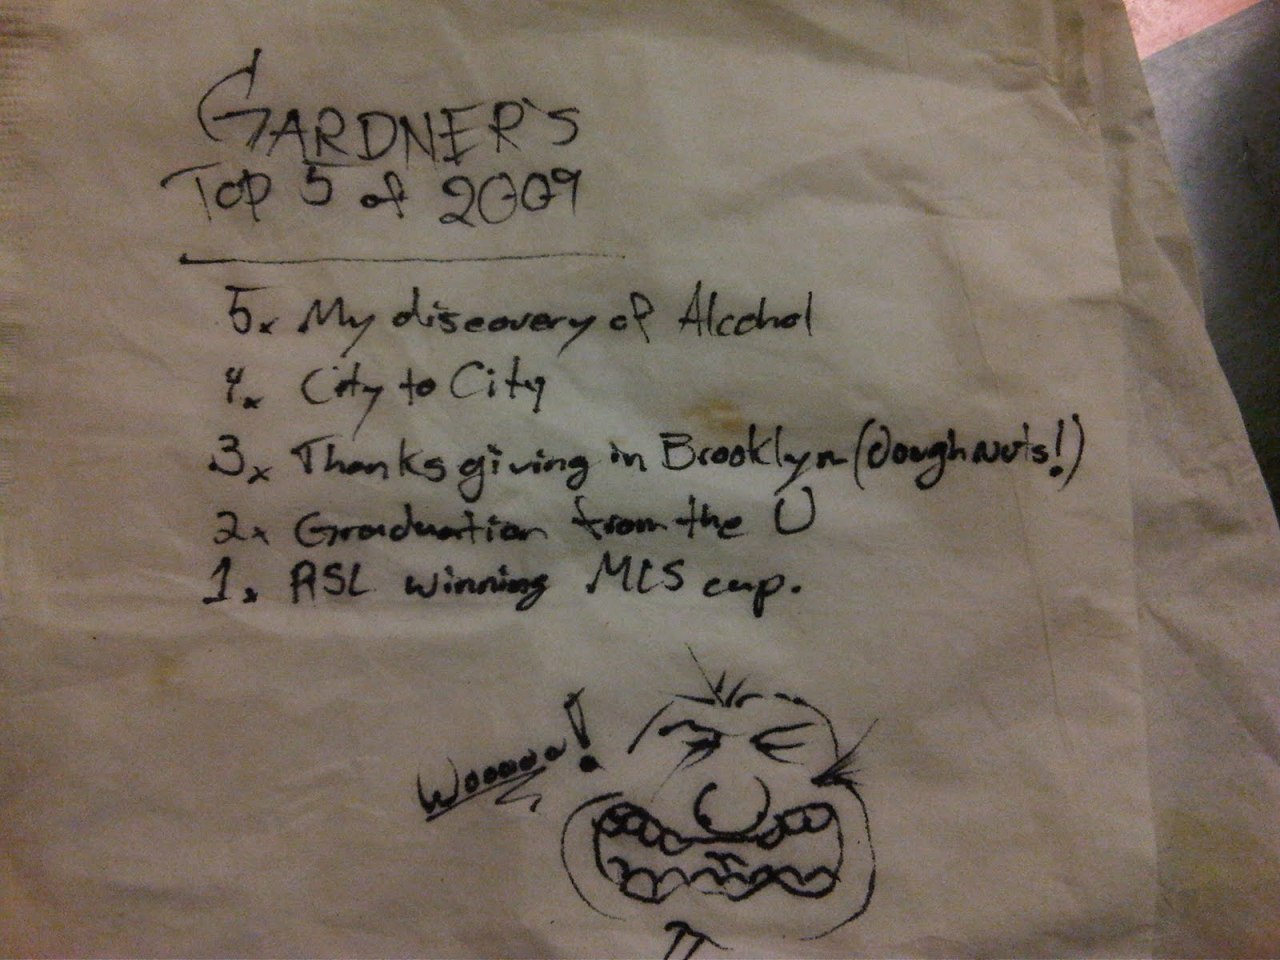 GARDNER'S
TOP 5 of 2009
5. My discovery of Alcohol
4. City to City
3. Thanksgiving in Brooklyn (doughnuts!)
2. Graduation from the U
1. RSL winning MLS cup.
Wooooo!